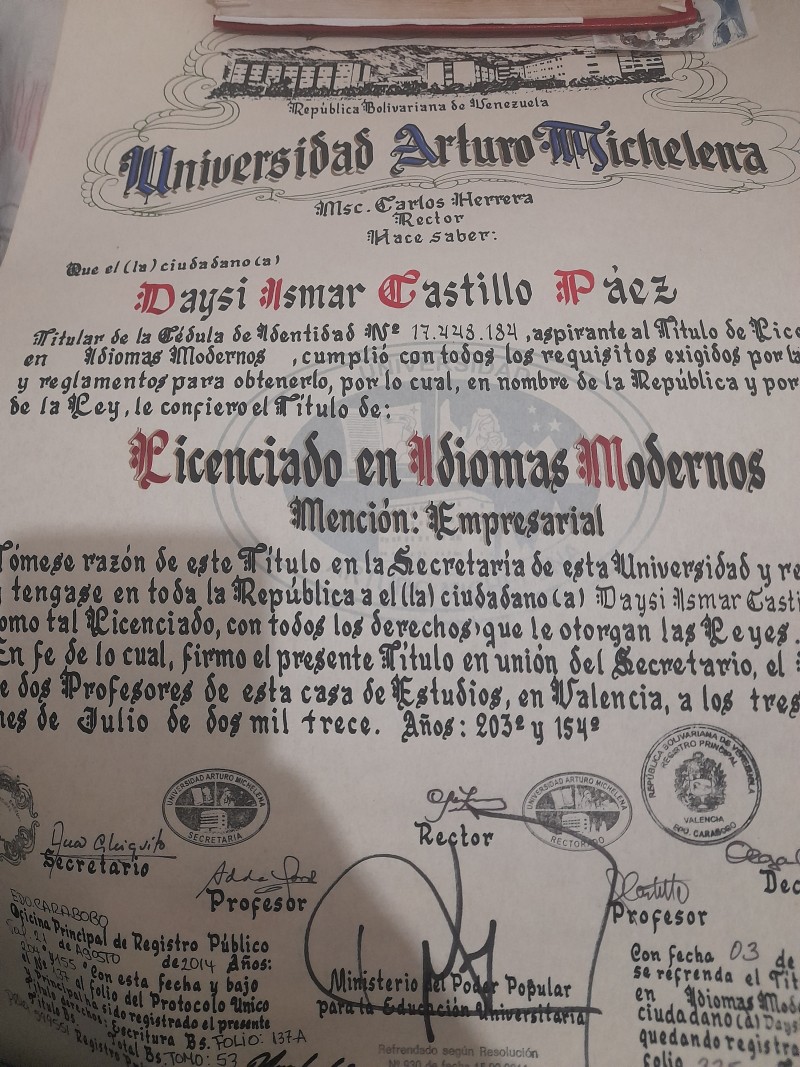 República Bolivariana de Venezuela
Universidad Arturo Michelena
Msc. Carlos Herrera
Rector
Hace saber:
Que el (la) ciudadano(a)
Daysi Ismar Castillo Páez
Titular de la Cédula de Identidad Nº 17.448.184, aspirante al Título de Lice
en Idiomas Modernos , cumplió con todos los requisitos exigidos por la
y reglamentos para obtenerlo, por lo cual, en nombre de la República y por
de la Ley, le confiero el Título de:
Licenciado en Idiomas Modernos
Mención: Empresarial
Tómese razón de este Título en la Secretaría de esta Universidad y re
tengase en toda la República a el (la) ciudadano(a) Daysi Ismar Casti
omo tal Licenciado, con todos los derechos que le otorgan las Leyes.
En fe de lo cual, firmo el presente Título en unión del Secretario, el
e dos Profesores de esta casa de Estudios, en Valencia, a los tres
nes de Julio de dos mil trece. Años: 203º y 154º
UNIVERSIDAD ARTURO MICHELENA
SECRETARIA
UNIVERSIDAD ARTURO MICHELENA
RECTORADO
REPÚBLICA BOLIVARIANA DE VENEZUELA
REGISTRO PRINCIPAL
VALENCIA
EDO. CARABOBO
Rector
Secretario
Profesor
Profesor
Dec
EDO. CARABOBO
Oficina Principal de Registro Público
21 de AGOSTO de 2014 Años:
204 y 155 Con esta fecha y bajo
el Nº 137 al folio del Protocolo Único
y Principal ha sido registrado el presente
Título derechos: Escritura Bs. FOLIO: 137A
Total Bs. TOMO: 53
Ministerio del Poder Popular
para la Educación Universitaria
Refrendado según Resolución
Con fecha 03 de
se refrenda el Tít
en Idiomas Mod
ciudadano(a) Days
quedando registra
folio